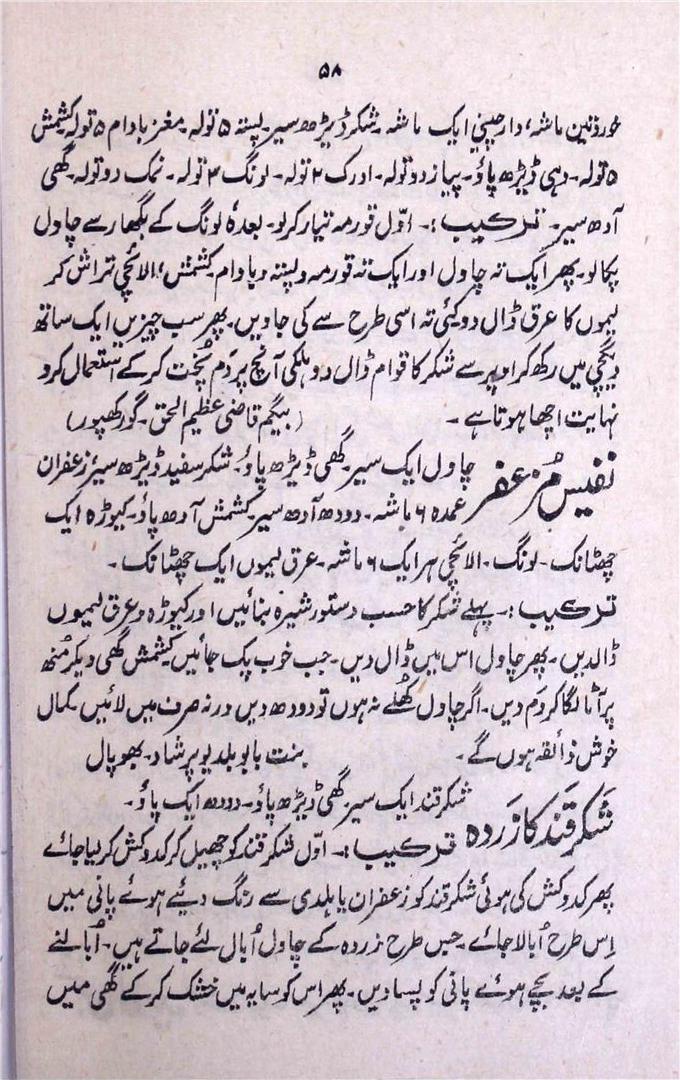 ۵۸
خورد تین ماشہ، دارچینی ایک ماشہ۔ شکر ڈیڑھ سیر۔ پستہ ۵ تولہ۔ مغز بادام ۵ تولہ کشمش
۵ تولہ۔ دہی ڈیڑھ پاؤ۔ پیاز دو تولہ۔ ادرک ۲ تولہ۔ لونگ ۲ تولہ۔ نمک دو تولہ۔ گھی
آدھ سیر۔ ترکیب:۔ اوّل قورمہ تیار کرلو۔ بعدہٗ لونگ کے بگھار سے چاول
پکالو۔ پھر ایک تہ چاول اور ایک تہ قورمہ و پستہ و بادام کشمش، الائچی تراش کر
لیموں کا عرق ڈال دو کئی تہ اسی طرح سے کی جاویں۔ پھر سب چیزیں ایک ساتھ
دیگچی میں رکھ کر اوپر سے شکر کا قوام ڈال دو ہلکی آنچ پر دَم پُخت کرکے استعمال کرو
نہایت اچھا ہوتا ہے۔ (بیگم قاضی عظیم الحق۔ گورکھپور)
نفیس مُزعفر چاول ایک سیر۔ گھی ڈیڑھ پاؤ۔ شکر سفید ڈیڑھ سیر زعفران
عمدہ ۶ ماشہ۔ دودھ آدھ سیر کشمش آدھ پاؤ۔ کیوڑہ ایک
چھٹانک۔ لونگ۔ الائچی ہر ایک ۶ ماشہ۔ عرق لیموں ایک چھٹانک۔
ترکیب:۔ پہلے شکر کا حسب دستور شیرہ بنائیں اور کیوڑہ و عرق لیموں
ڈالدیں۔ پھر چاول اس میں ڈال دیں۔ جب خوب پک جائیں کشمش گھی دیکر مُنھ
پر آٹا لگا کر دَم دیں۔ اگر چاول کُھلے نہ ہوں تو دودھ دیں ورنہ صرف میں لائیں کمال
خوش ذائقہ ہوں گے۔ بنت بابو بلدیو پرشاد۔ بھوپال
شکرقند کا زردہ شکرقند ایک سیر۔ گھی ڈیڑھ پاؤ۔ دودھ ایک پاؤ۔
ترکیب:۔ اوّل شکرقند کو چھیل کر کدوکش کر لیا جائے
پھر کدوکش کی ہوئی شکرقند کو زعفران یا ہلدی سے رنگ دیئے ہوئے پانی میں
اِس طرح اُبالا جائے۔ جس طرح زردہ کے چاول اُبال لئے جاتے ہیں۔ اُبالنے
کے بعد بچے ہوئے پانی کو پسا دیں۔ پھر اس کو سایہ میں خشک کرکے گھی میں